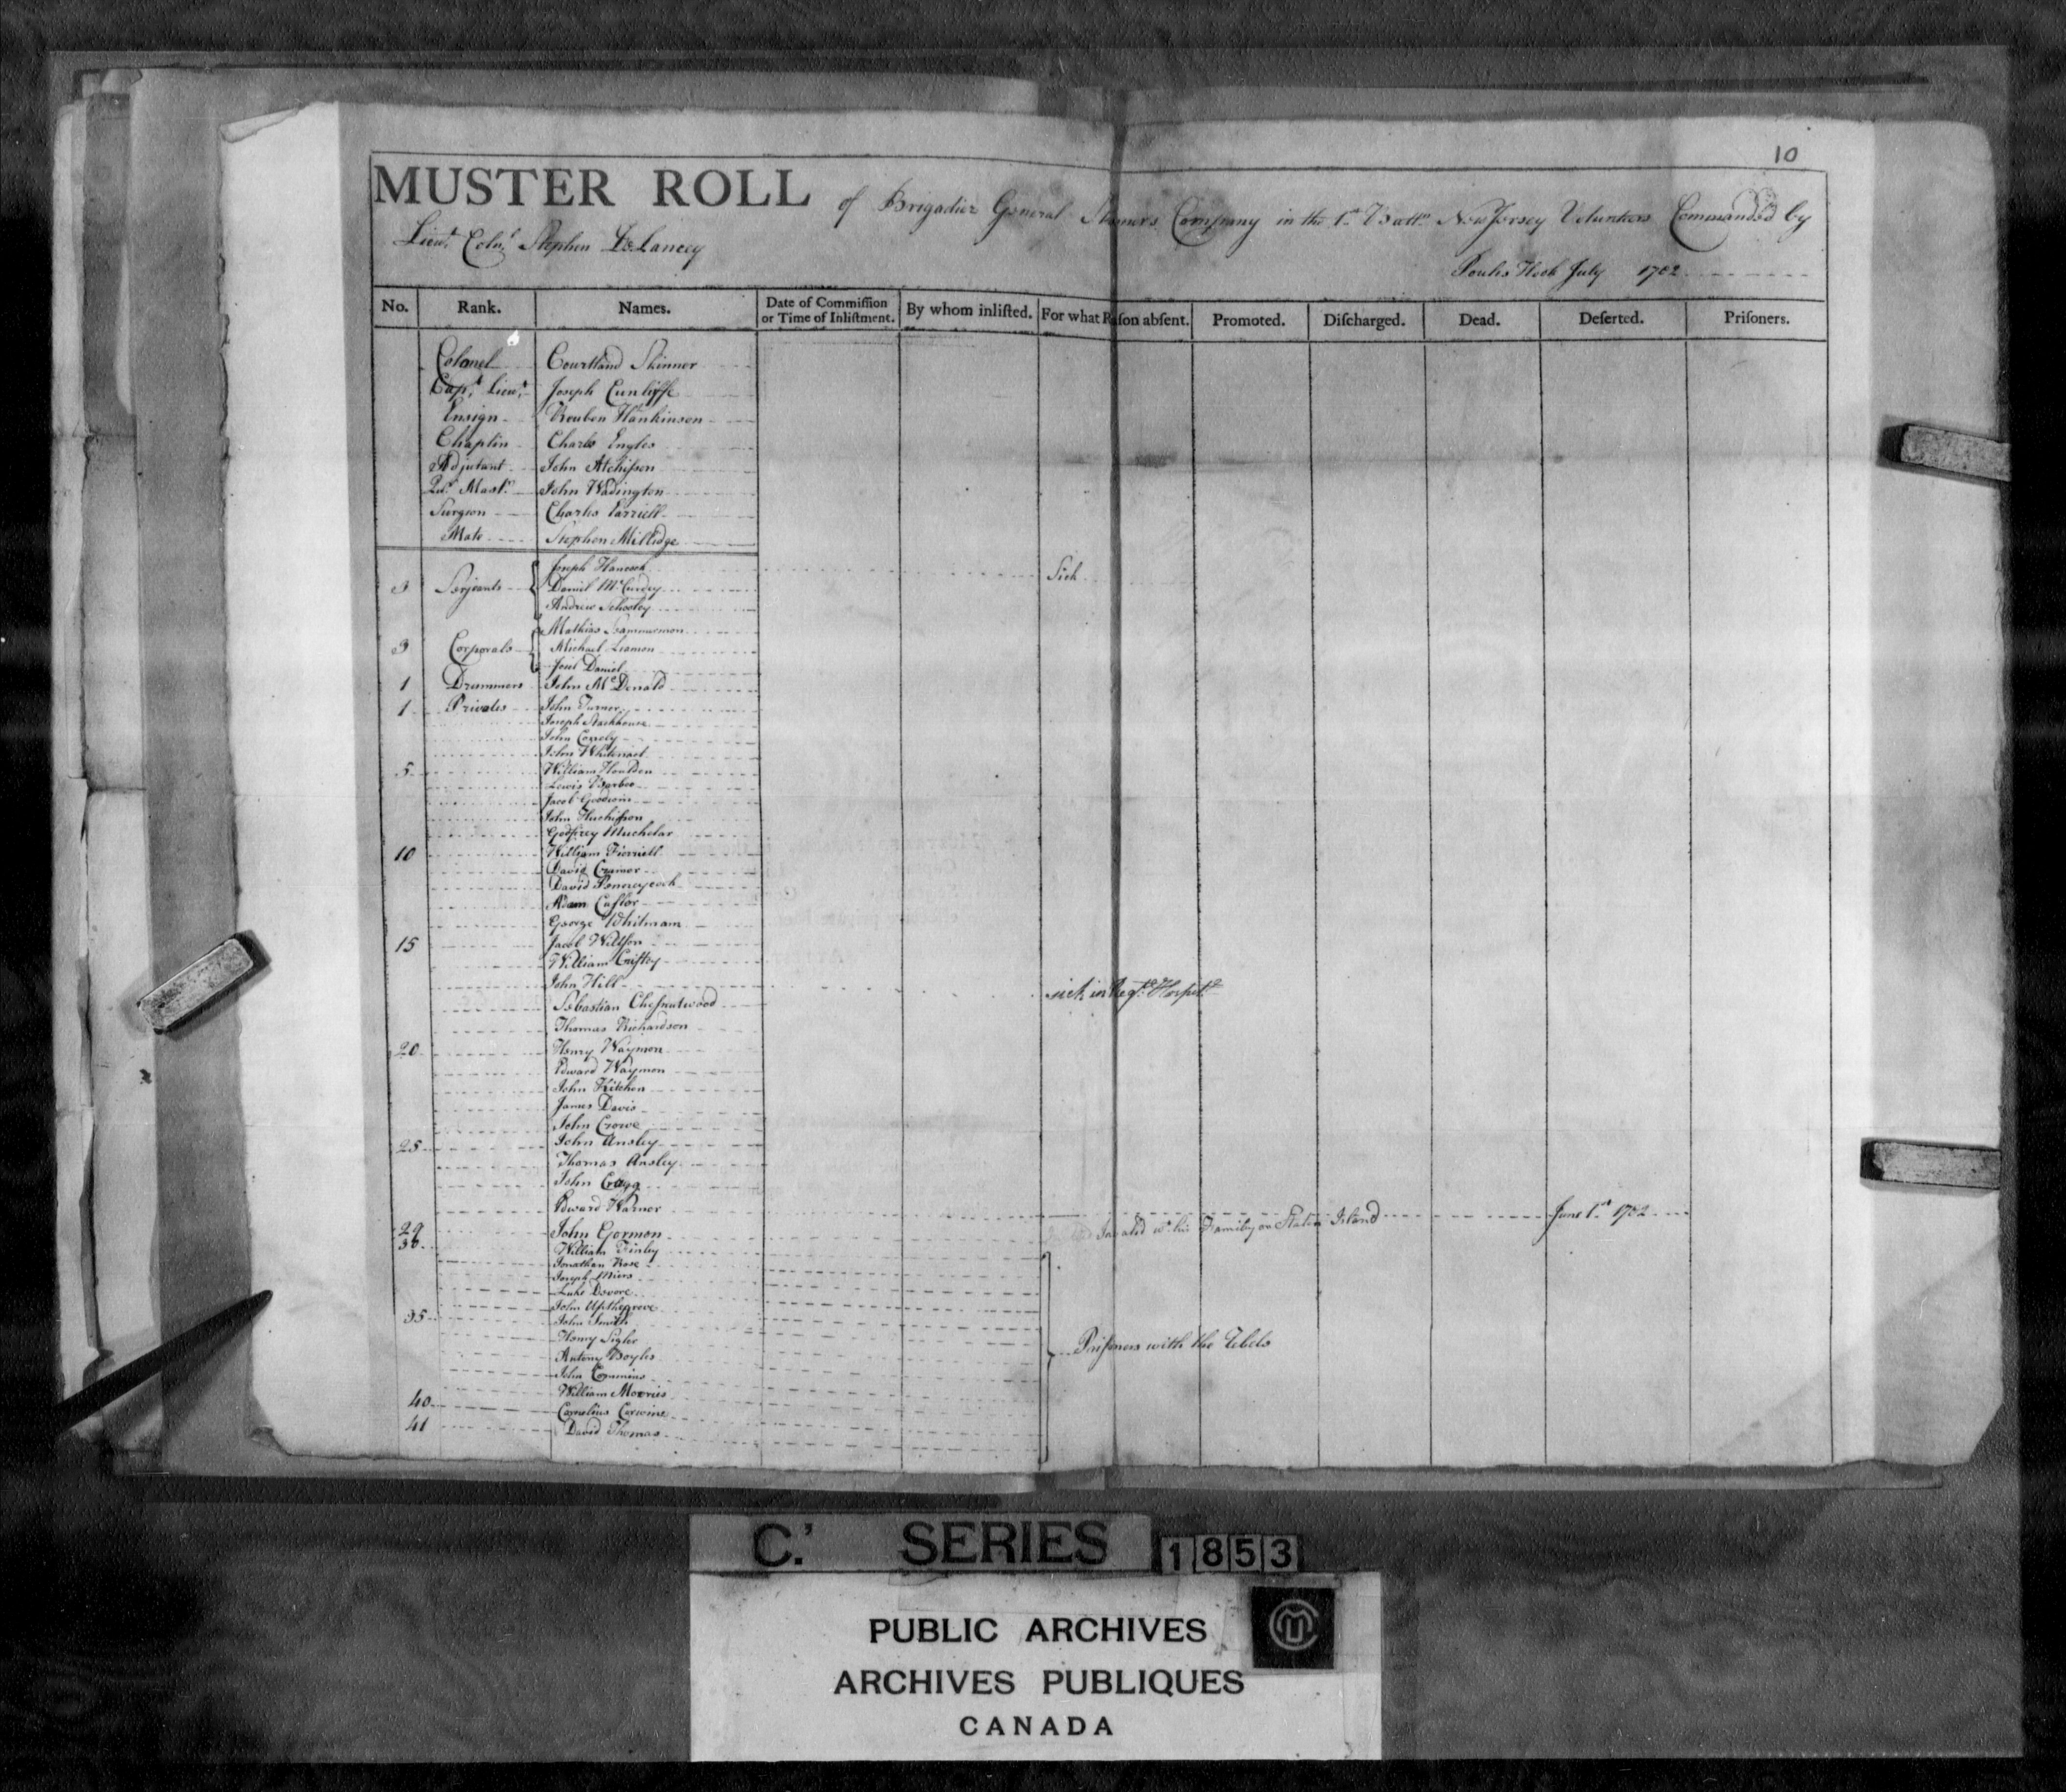 10
MUSTER ROLL of Brigadier General Skinners Company in the 1st Battn New Jersey Volunteers Commanded by
Lieut. Colnl. Stephen De Lancey
Poulis Hook July 1782
No. Rank. Names. Date of Commiſſion or Time of Inliſtment. By whom inliſted. For what Reaſon abſent. Promoted. Diſcharged. Dead. Deſerted. Priſoners.
Colonel Courtland Skinner
Capt. Lieut. Joseph Cunliffe
Ensign Reuben Hankinson
Chaplin Charles Engles
Adjutant John Atchiſson
Qur. Mastr. John Wadington
Surgeon Charles Earriell
Mate Stephen Millidge
Joseph Hancock Sick
3 Serjeants Daniel McCurdey
Andrew Schooley
Mathias Sammermon
3 Corporals Michael Leamon
Joiel Daniel
1 Drummers John McDonald
1 Privates John Turner
Joseph Stackhouse
John Conely
John Whitenact
5 William Houlden
Lewis Barber
Jacob Goodwin
John Huchiſson
Godfirey Muchelar
10 William Fierriell
David Cramer
David Penneycook
Adam Caſtor
George Whitmam
15 Jacob Willſon
William Criſtey
John Hill sick in Regtl Hospitl
Sebastian Cheſnutwood
Thomas Richardson
20 Henry Waymon
Edward Waymon
John Kitchen
James Davis
John Crowe
25 John Ansley
Thomas Ansley
John Cragg
Edward Warner June 1st 1782
29 John Gormon Invalid wt. his Familey on Staten Island
30 William Finley
Jonathan Rose
Joseph Miers
Luke Devore
John Upthegrove
35 John Smith
Henry Sigler
Antony Boyles Priſoners with the Rebels
John Commins
William Morries
40 Cornelius Corwine
41 David Thomas
C.' SERIES 1853
PUBLIC ARCHIVES
ARCHIVES PUBLIQUES
CANADA